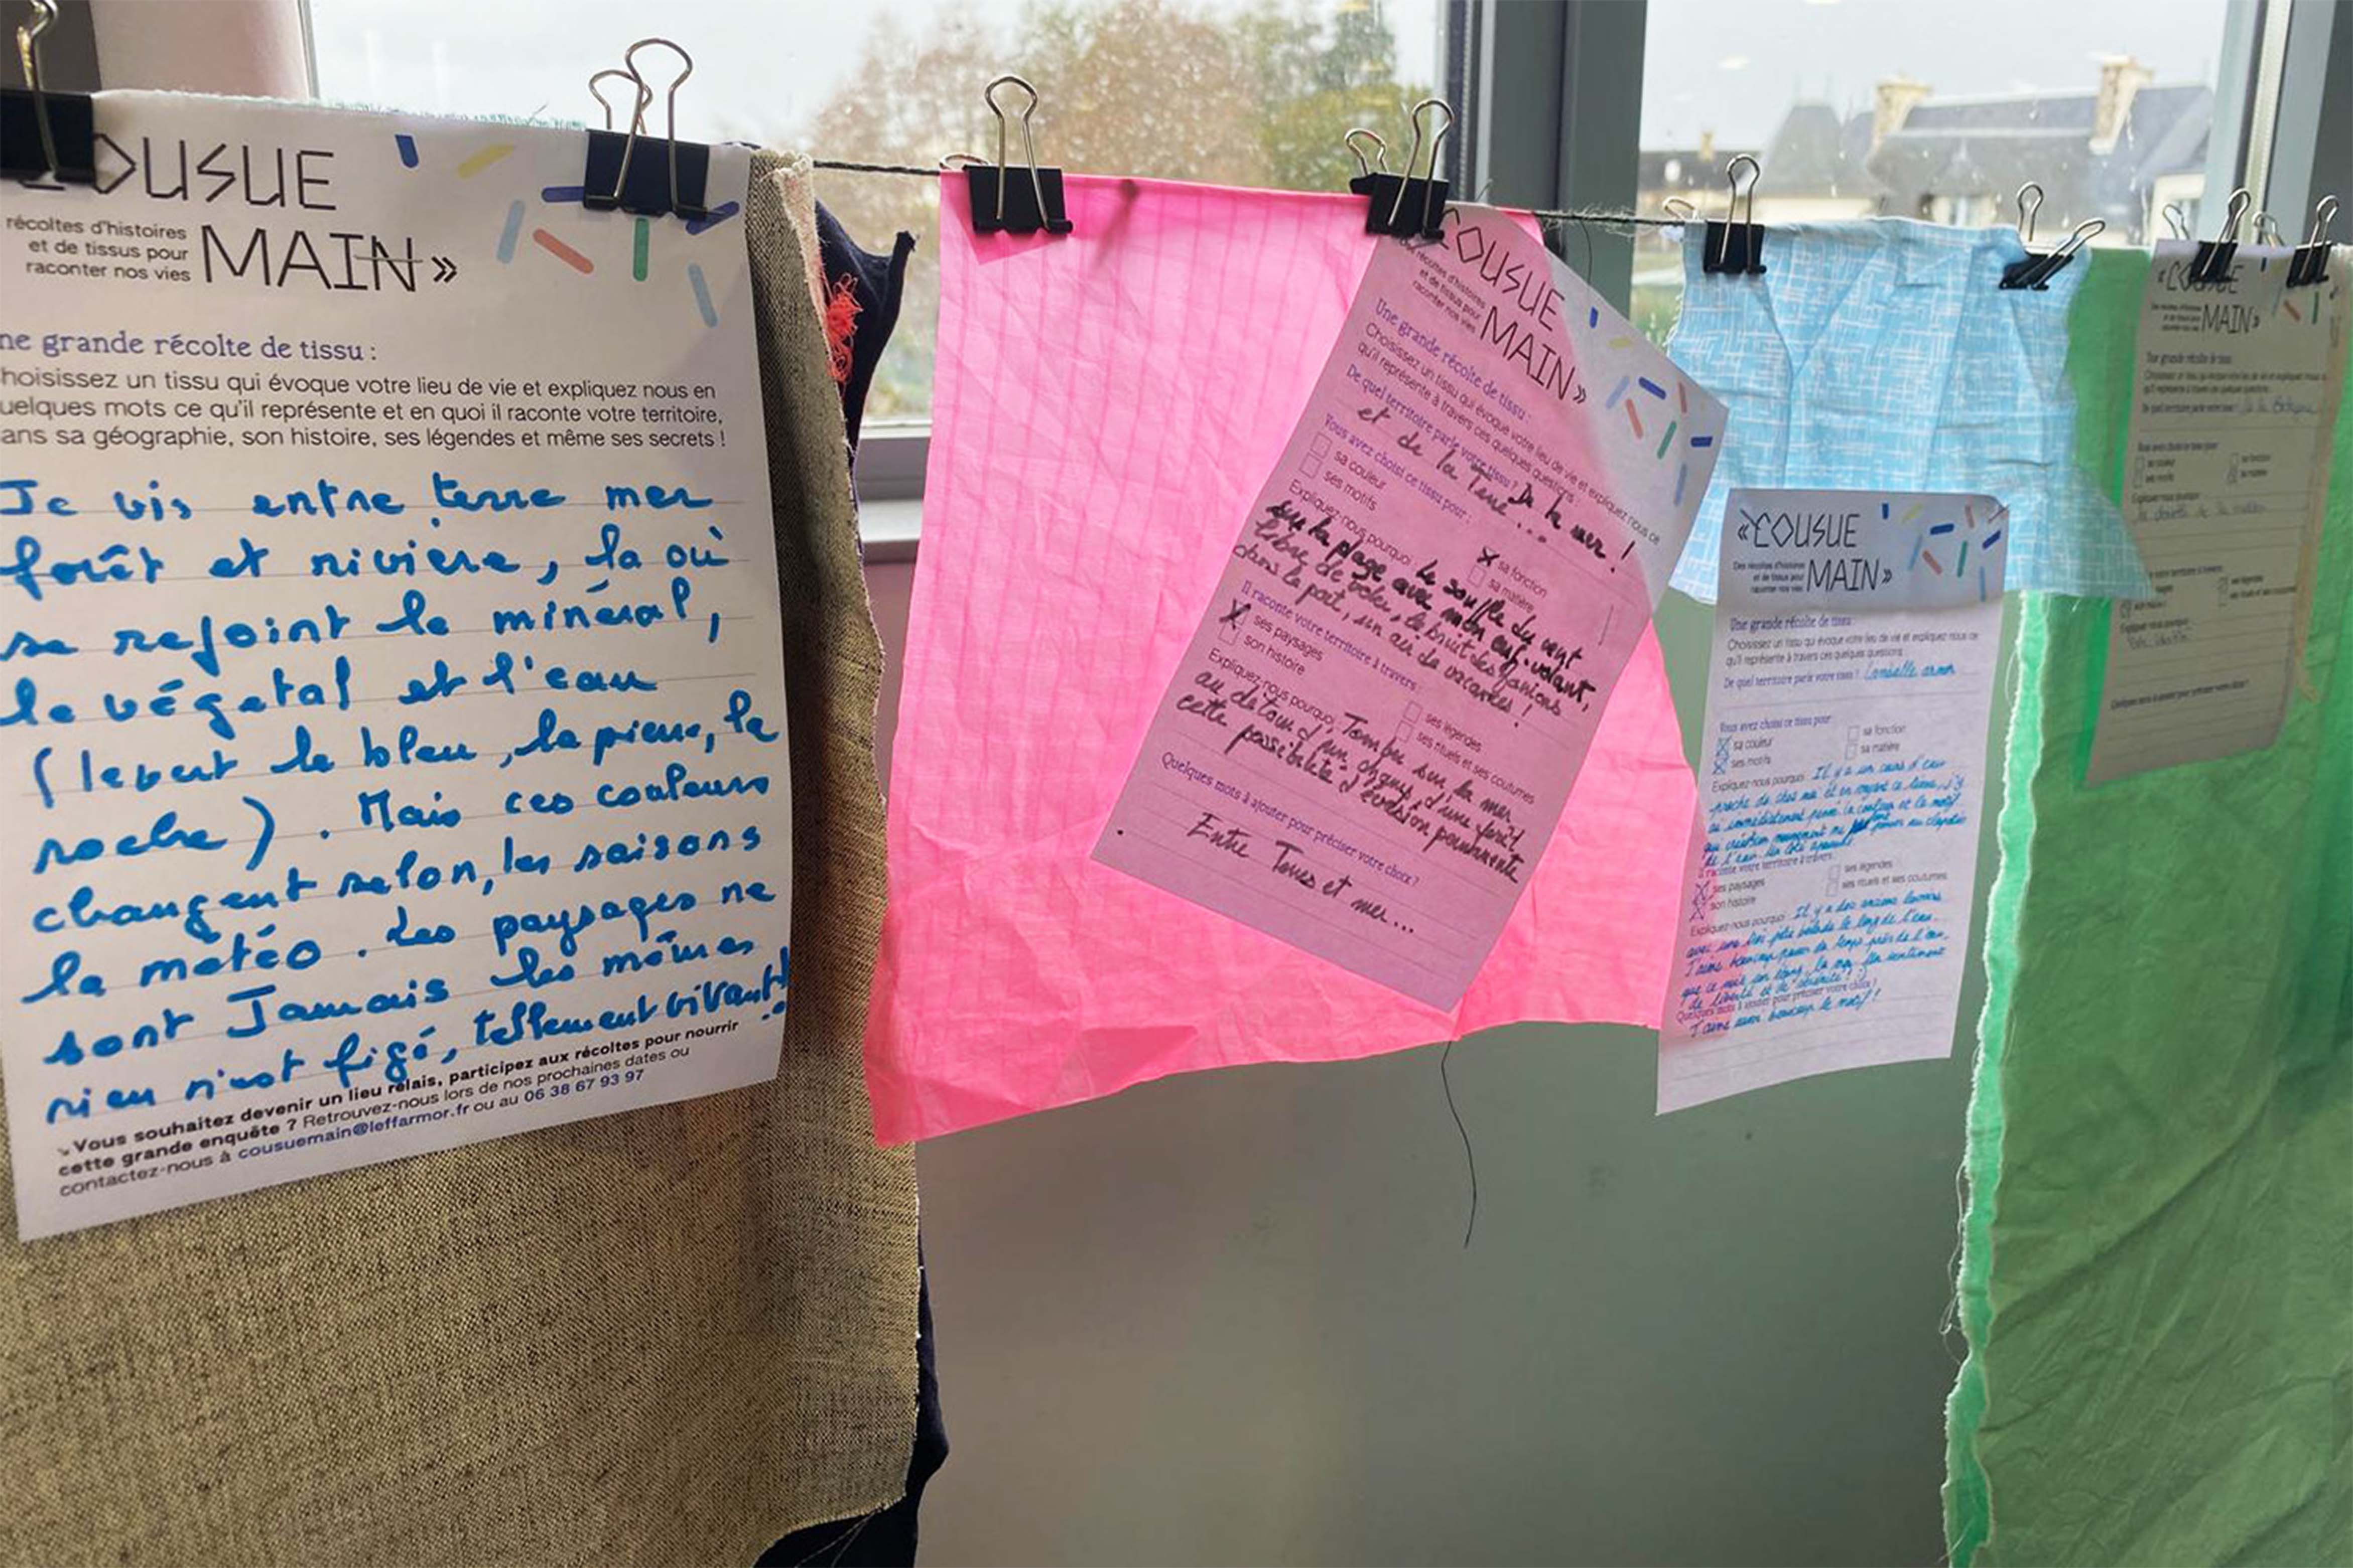 COUSUE
MAIN »
récoltes d'histoires
et de tissus pour
raconter nos vies
ne grande récolte de tissu :
hoisissez un tissu qui évoque votre lieu de vie et expliquez nous en
uelques mots ce qu'il représente et en quoi il raconte votre territoire,
ans sa géographie, son histoire, ses légendes et même ses secrets !
Je vis entre terre mer
forêt et rivière, la où
se rejoint le minéral,
le végétal et l'eau
(levert le bleu, la pierre, la
roche). Mais ces couleurs
changent selon, les saisons
la météo. Les paysages ne
sont Jamais les mêmes
rien n'est figé, tellement vivant !
Vous souhaitez devenir un lieu relais, participez aux récoltes pour nourrir
cette grande enquête ? Retrouvez-nous lors de nos prochaines dates ou
contactez-nous à cousuemain@leffarmor.fr ou au 06 38 67 93 97
COUSUE
MAIN »
récoltes d'histoires
et de tissus pour
raconter nos vies
Une grande récolte de tissu :
Choisissez un tissu qui évoque votre lieu de vie et expliquez nous ce
qu'il représente à travers ces quelques questions :
De quel territoire parle votre tissu ? De la mer !
et de la Terre...
Vous avez choisi ce tissu pour :
sa couleur
sa fonction
ses motifs
sa matière
Expliquez-nous pourquoi Le souffle du vent
sur la plage avec mon cerf-volant,
libre de voler, le bruit des fanions
dans le port, un air de vacances !
Il raconte votre territoire à travers :
ses paysages
ses légendes
son histoire
ses rituels et ses coutumes
Expliquez-nous pourquoi Tomber sur la mer
au détour d'un champ, d'une forêt
cette possibilité d'évasion permanente
Quelques mots à ajouter pour préciser votre choix ?
Entre Terres et mer...
« COUSUE
MAIN »
Des récoltes d'histoires
et de tissus pour
raconter nos vies
Une grande récolte de tissu :
Choisissez un tissu qui évoque votre lieu de vie et expliquez nous ce
qu'il représente à travers ces quelques questions :
De quel territoire parle votre tissu ? Lamballe armor
Vous avez choisi ce tissu pour :
sa couleur
sa fonction
ses motifs
sa matière
Expliquez-nous pourquoi Il y a un cours d'eau
proche de chez moi et en voyant ce tissu, j'y
ai immédiatement pensé, la couleur et le motif
Il raconte votre territoire à travers :
ses paysages
ses légendes
son histoire
ses rituels et ses coutumes
Expliquez-nous pourquoi Il y a des anciens lavoirs
avec une très jolie balade le long de l'eau.
J'aime beaucoup passer du temps près de l'eau
de liberté et de sérénité !
Quelques mots à ajouter pour préciser votre choix ?
J'aime aussi beaucoup le motif !
« COUSUE
MAIN »
Des récoltes d'histoires
et de tissus pour
raconter nos vies
Une grande récolte de tissu
De quel territoire parle votre tissu ?
Vous avez choisi ce tissu pour
sa couleur
sa fonction
ses motifs
sa matière
Expliquez-nous pourquoi